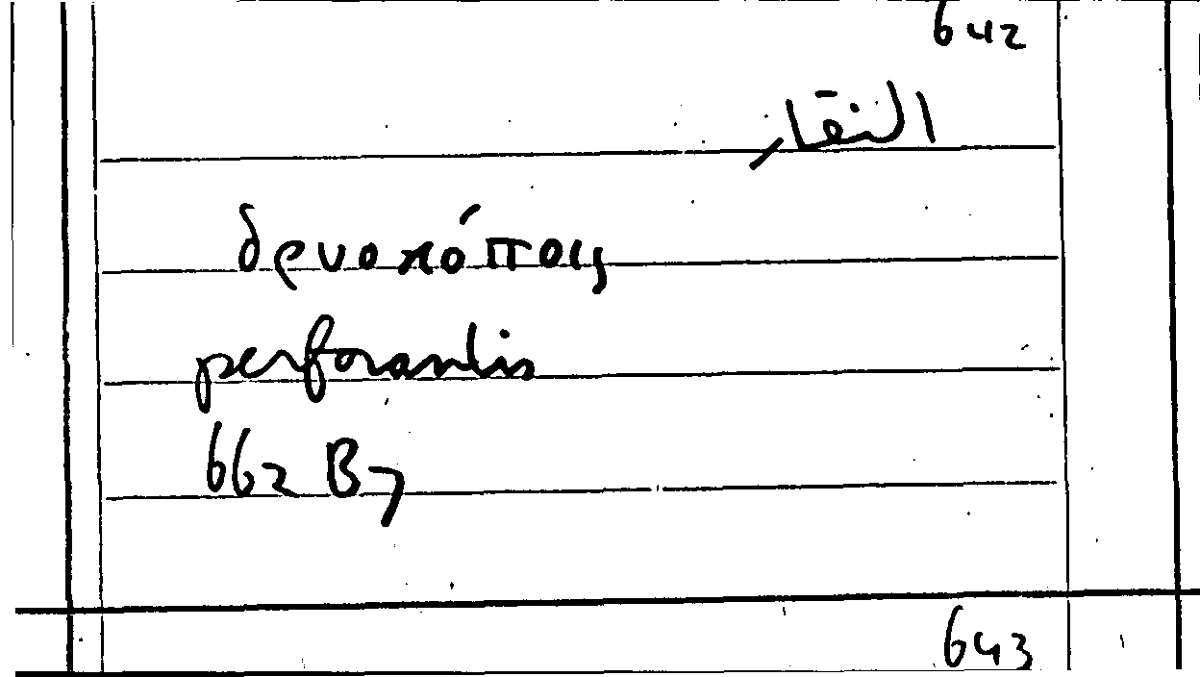 642
النقار
δρυοκόποις
perforantis
662 B7
643